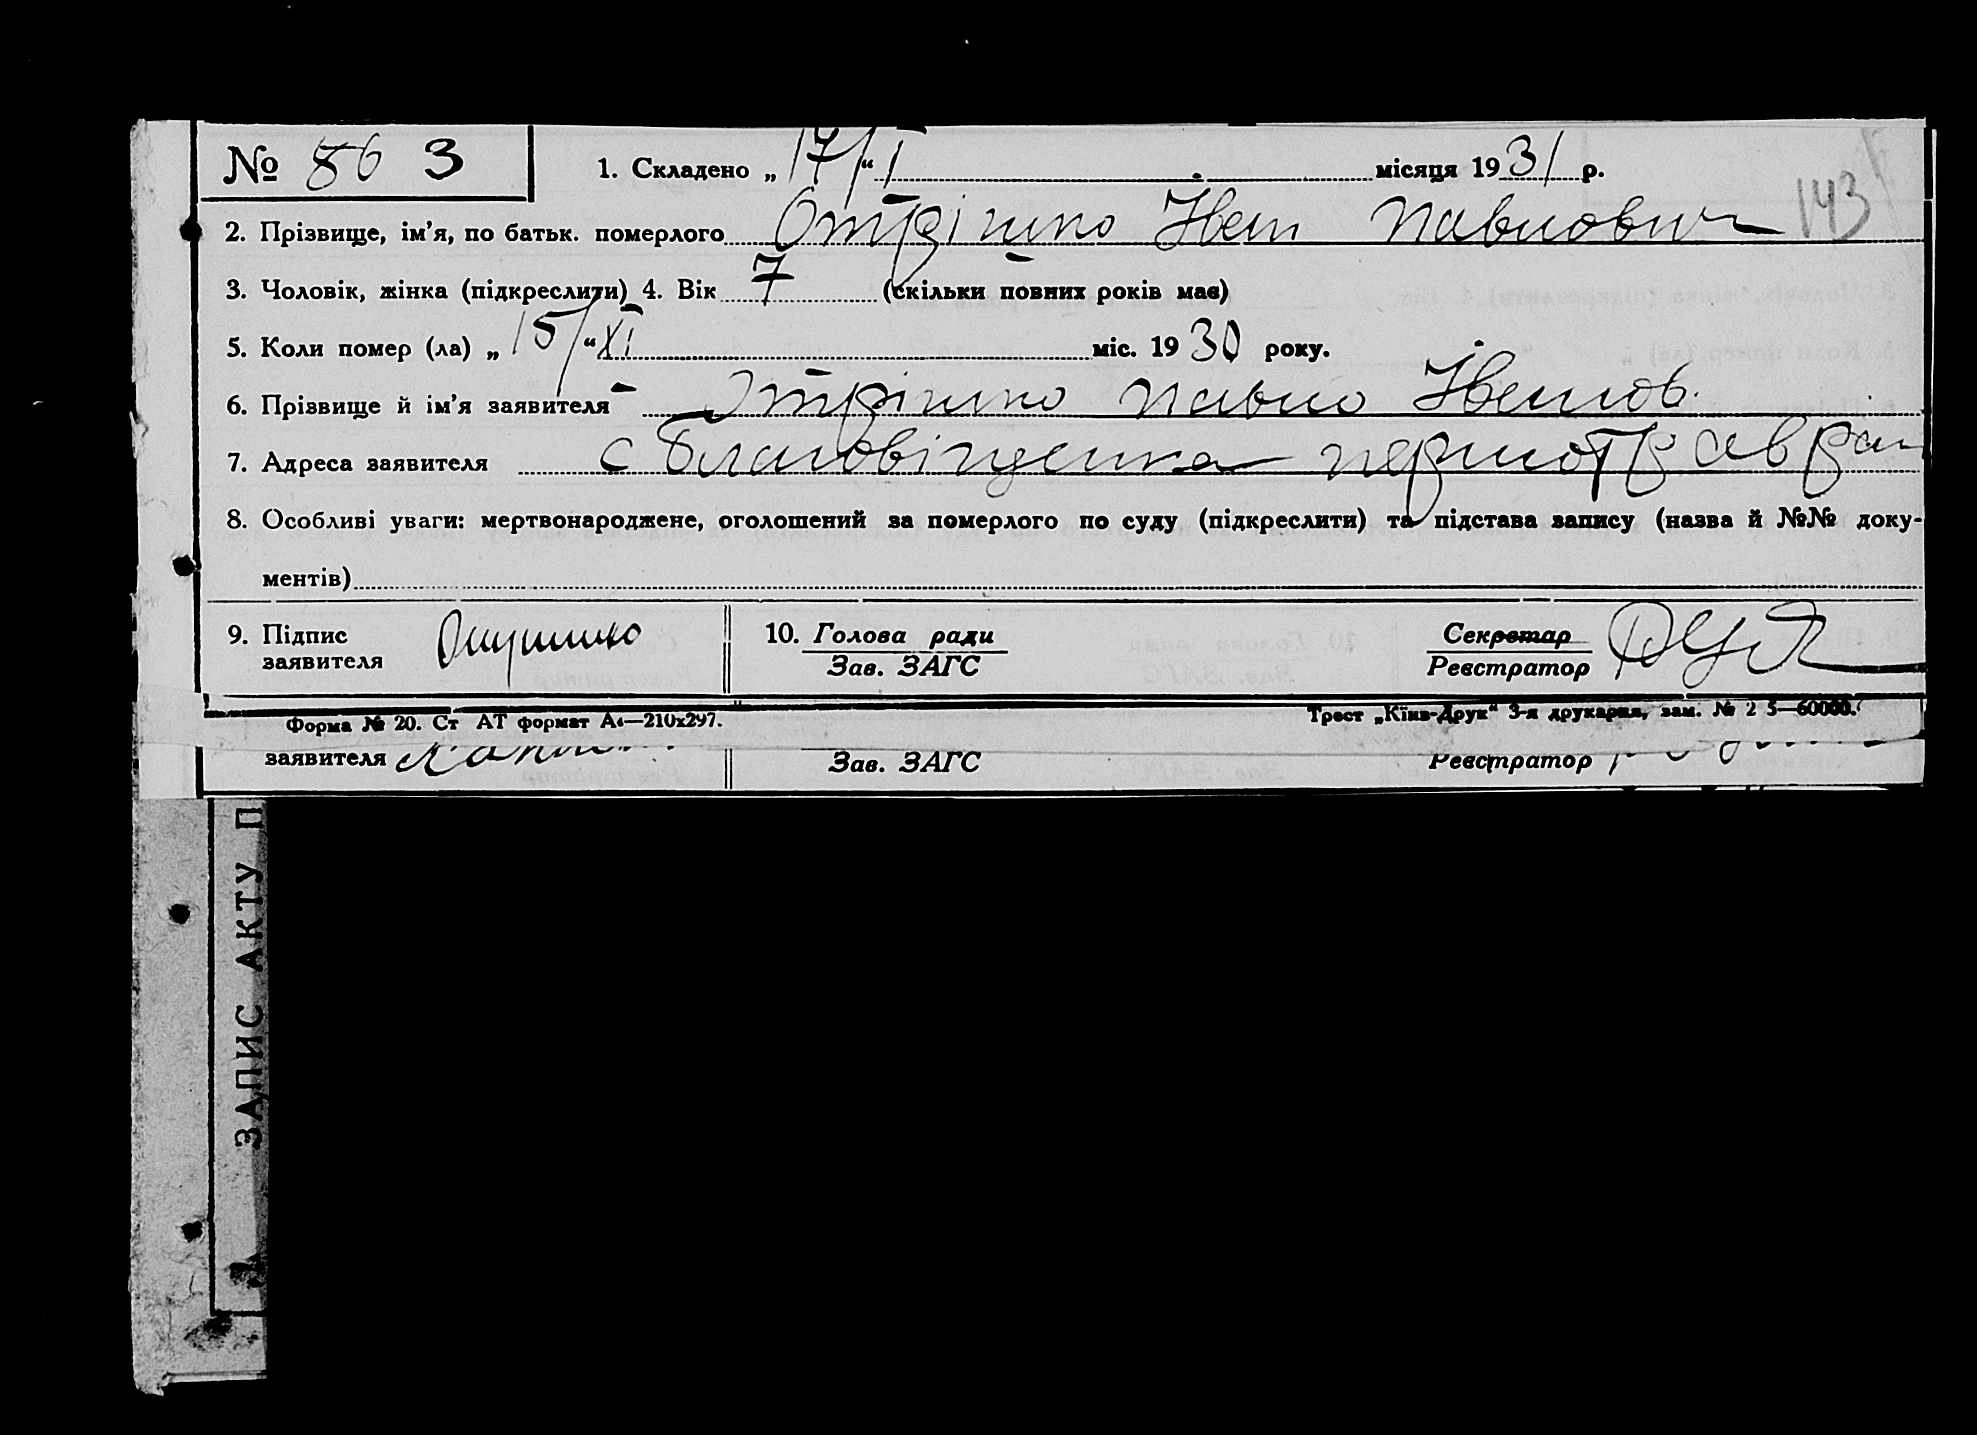 № 86 3
1. Складено „17/“ I місяця 1931 р.
143
2. Прізвище, ім’я, по батьк. померлого Отрішко Іван Павлович
3. Чоловік, жінка (підкреслити) 4. Вік 7 (скільки повних років має)
5. Коли помер (ла) „15/“ XI міс. 1930 року.
6. Прізвище й ім’я заявителя Отрішко Павло Іванов.
7. Адреса заявителя с Благовіщенка
8. Особливі уваги: мертвонароджене, оголошений за померлого по суду (підкреслити) та підстава запису (назва й №№ доку-
ментів)
9. Підпис заявителя
10. Голова ради
Зав. ЗАГС
Секретар
Реєстратор
Форма № 20. Ст АТ формат А4—210х297.
Трест „Київ-Друк“ 3-я друкарня, зам. № 2 5—60000.
заявителя
Зав. ЗАГС
Реєстратор
ЗАПИС АКТУ П